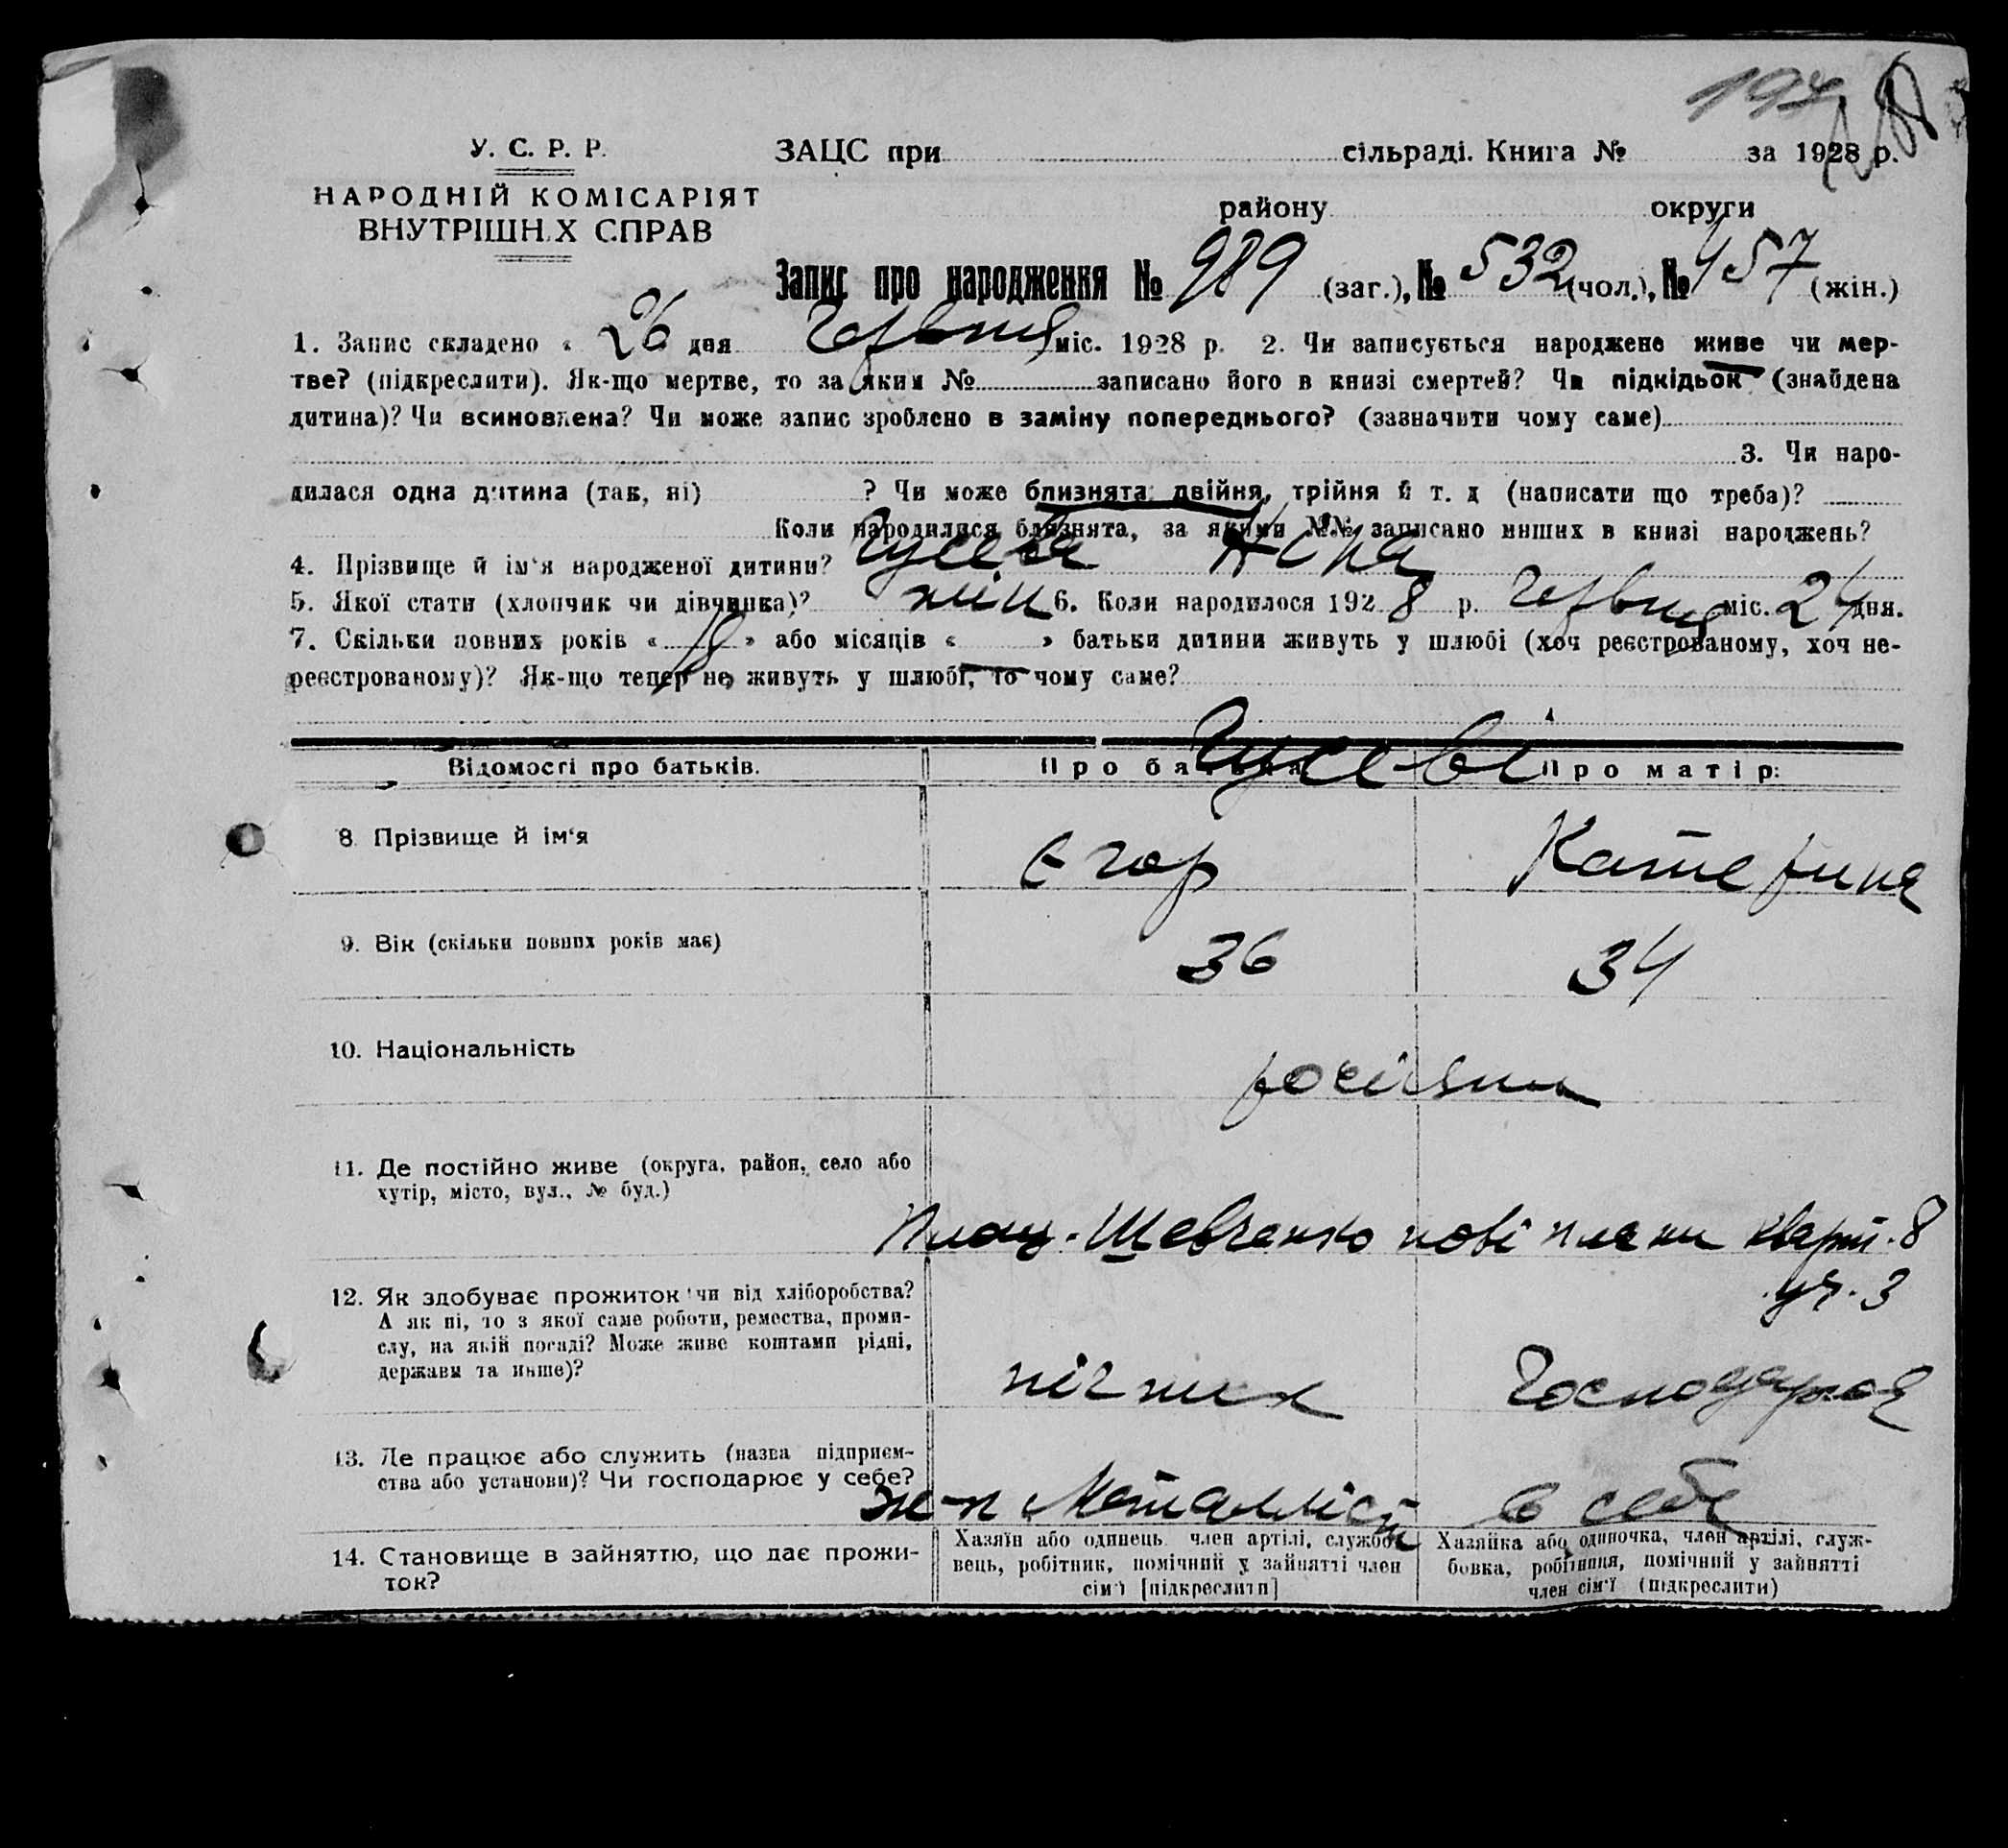 194
У. С. Р. Р. ЗАЦС при сільраді. Книга № за 1928 р.
НАРОДНІЙ КОМІСАРІЯТ
ВНУТРІШНІХ СПРАВ
району округи
Запис про народження № 989 (заг.), № 532 (чол.), № 457 (жін.)
1. Запис складено « 26 дня Червня міс. 1928 р. 2. Чи записується народжене живе чи мер-
тве? (підкреслити). Як-що мертве, то за яким № записано його в книзі смертей? Чи підкідьок (знайдена
дитина)? Чи всиновлена? Чи може запис зроблено в заміну попереднього? (зазначити чому саме)
3. Чи наро-
дилася одна дитина (так, ні) ? Чи може близнята: двійня, трійня й т. д (написати що треба)?
Коли народилися близнята, за якими №№ записано инших в книзі народжень?
4. Прізвище й ім'я народженої дитини? Гусева Нона
5. Якої стати (хлопчик чи дівчинка)? жін 6. Коли народилося 1928 р. Червня міс. 24 дня.
7. Скільки повних років « » або місяців « » батьки дитини живуть у шлюбі (хоч реєстрованому, хоч не-
реєстрованому)? Як-що тепер не живуть у шлюбі, то чому саме?
Гусеві
Відомості про батьків. Про батька Про матір:
8. Прізвище й ім'я Єгор Катерина
9. Вік (скільки повних років має) 36 34
10. Національність росіяни
11. Де постійно живе (округа, район, село або
хутір, місто, вул., № буд.)
Площ. Шевченко нові плани кварт. 8
уч. 3
12. Як здобуває прожиток чи від хліборобства?
А як ні, то з якої саме роботи, ремества, проми-
слу, на якій посаді? Може живе коштами рідні,
держави та инше)?
пічник Господарює
13. Де працює або служить (назва підприєм-
ства або установи)? Чи господарює у себе?
ж-к Металліст в себе
14. Становище в зайняттю, що дає прожи-
ток?
Хазяїн або одинець член артілі, службо-
вець, робітник, помічний у зайнятті член
сім'ї [підкреслити]
Хазяйка або одиночка, член артілі, служ-
бовка, робітниця, помічний у зайнятті
член сім'ї (підкреслити)